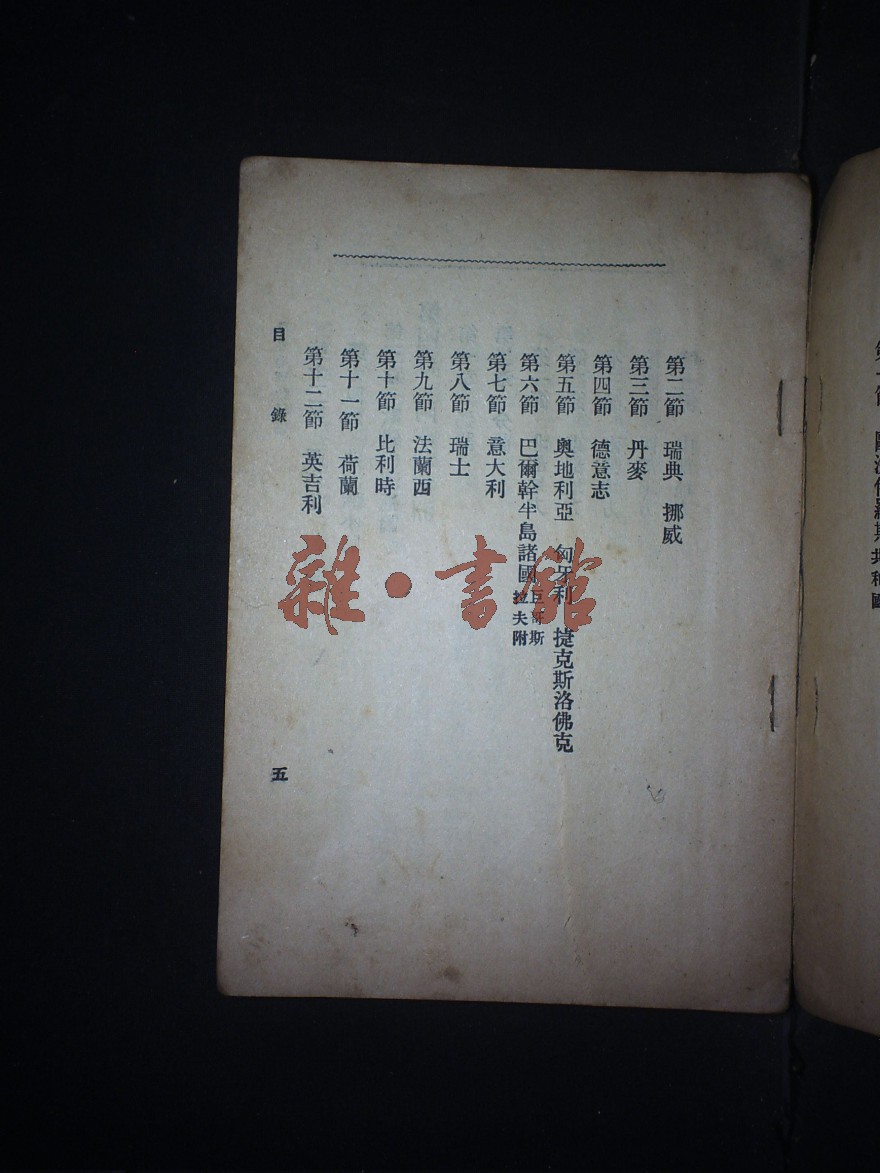 第二節 瑞典 挪威
第三節 丹麥
第四節 德意志
第五節 奧地利亞 匈牙利 捷克斯洛佛克
第六節 巴爾幹半島諸國 巨哥斯拉夫附
第七節 意大利
第八節 瑞士
第九節 法蘭西
第十節 比利時
第十一節 荷蘭
第十二節 英吉利
目錄
五
雜·書館